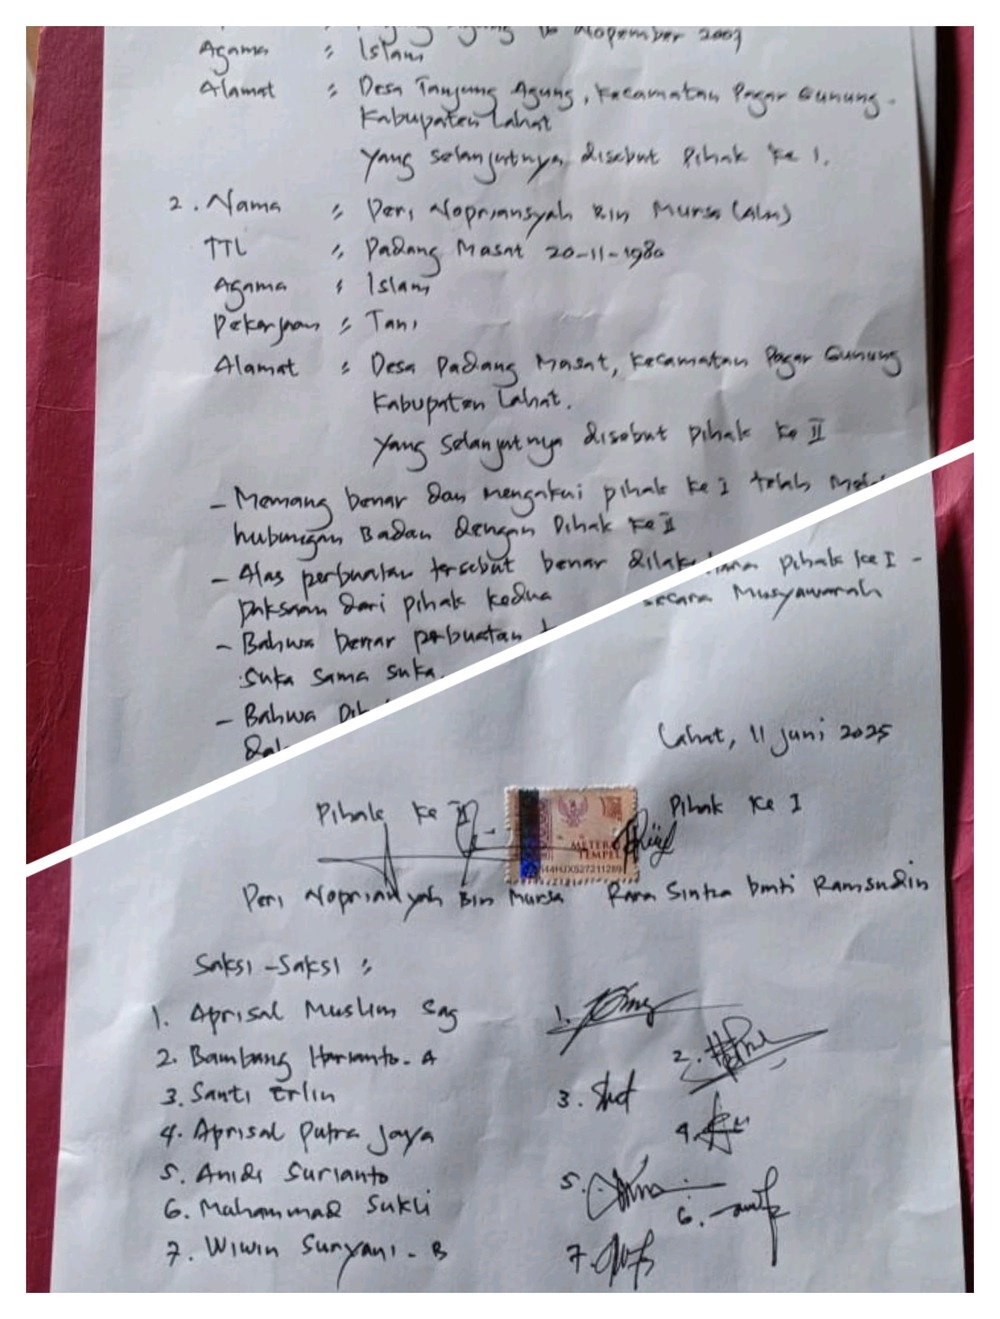 Nopember 2003
Agama : Islam
Alamat : Desa Tanjung Agung, Kecamatan Pagar Gunung -
Kabupaten Lahat
Yang selanjutnya disebut Pihak Ke 1.
2. Nama : Peri Nopriansyah Bin Mursa (Alm)
TTL : Padang Masat 20-11-1980
Agama : Islam
Pekerjaan : Tani
Alamat : Desa Padang Masat, Kecamatan Pagar Gunung
Kabupaten Lahat.
Yang Selanjutnya disebut Pihak Ke II
- Memang benar dan mengakui pihak Ke I telah
hubungan Badan dengan Pihak Ke II
- Atas perbuatan tersebut benar
paksaan dari pihak kedua
- Bahwa benar perbuatan
suka sama suka.
- Bahwa
Pihak Ke I -
secara Musyawarah
Lahat, 11 Juni 2025
Pihak Ke II Pihak Ke I
METERAI
TEMPEL
Peri Nopriansyah Bin Mursa Rara Sintia binti Ramsudin
Saksi-Saksi :
1. Aprisal Muslim Sag 1.
2. Bambang Harianto. A 2.
3. Santi Erlin 3.
4. Aprisal Putra Jaya 4.
5. Andi Surianto 5.
6. Muhammad Sukli 6.
7. Wiwin Suryani. B 7.